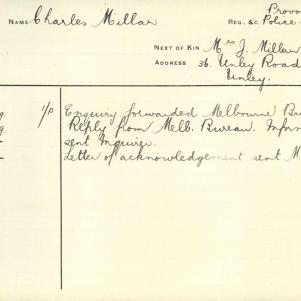 Provo
NAME Charles Millar REG. &C. Police
NEXT OF KIN Mrs J. Millar
ADDRESS 36. Unley Road
Unley.
9. 1/P Enquiry forwarded Melbourne Bu
9 Reply from Melb. Bureau. Infor
sent Inquirer.
Letter of acknowledgement sent M